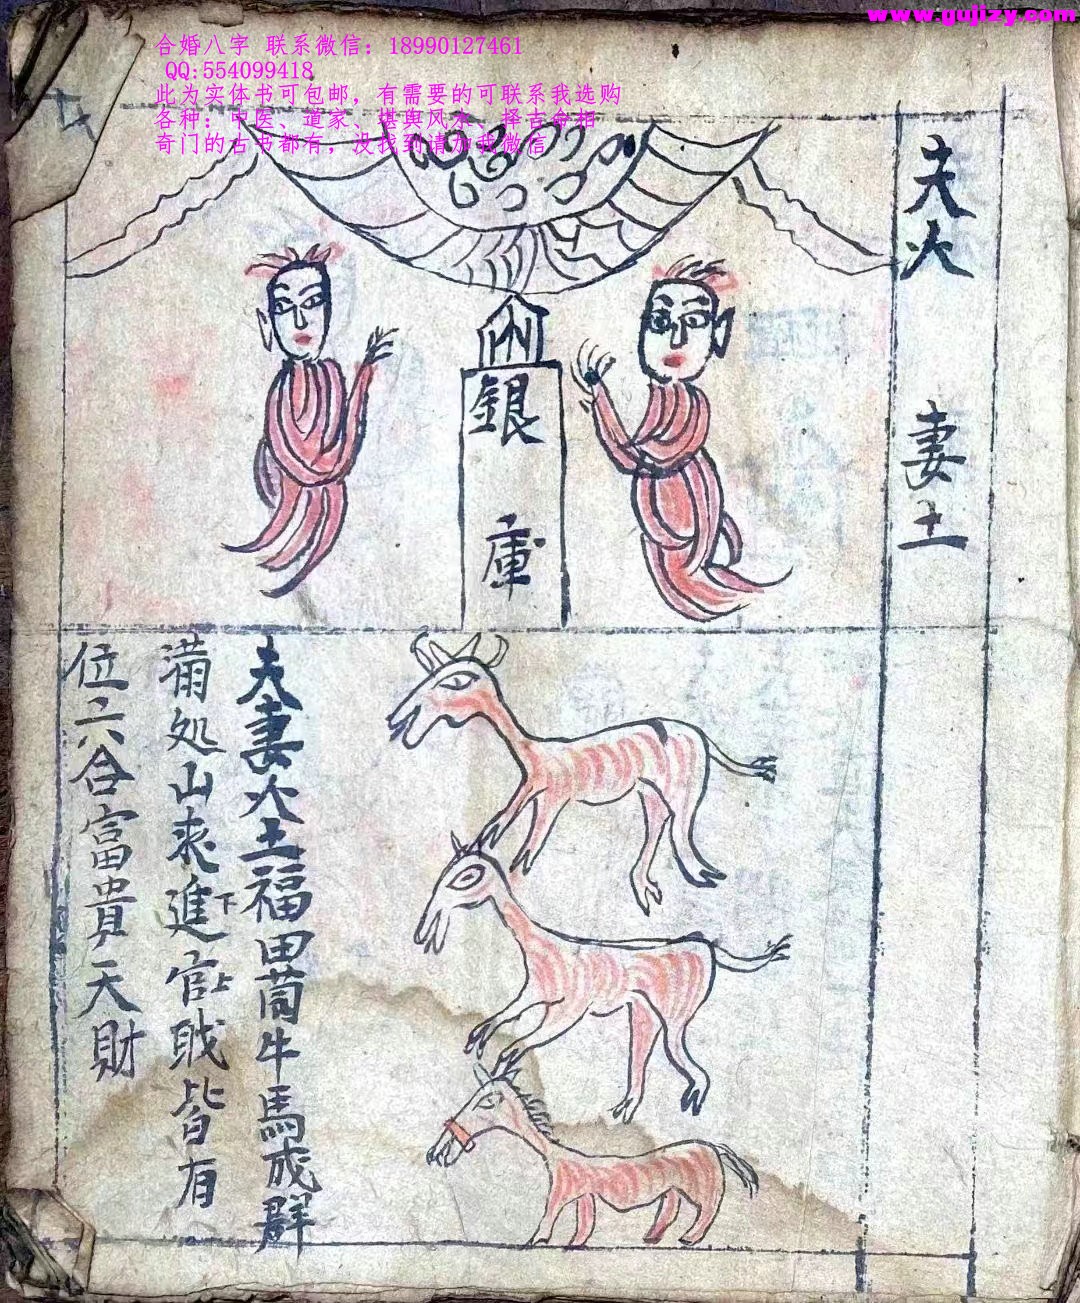 www.gujizy.com
合婚八字 联系微信：18990127461
QQ:554099418
此为实体书可包邮，有需要的可联系我选购
各种：中医、道家、堪舆风水、择吉命相
奇门的古书都有，没找到请加我微信
夫火 妻土
銀庫
夫妻火土福田苘牛馬成群
满処山来進下官上戝皆有
位二六合富貴天財